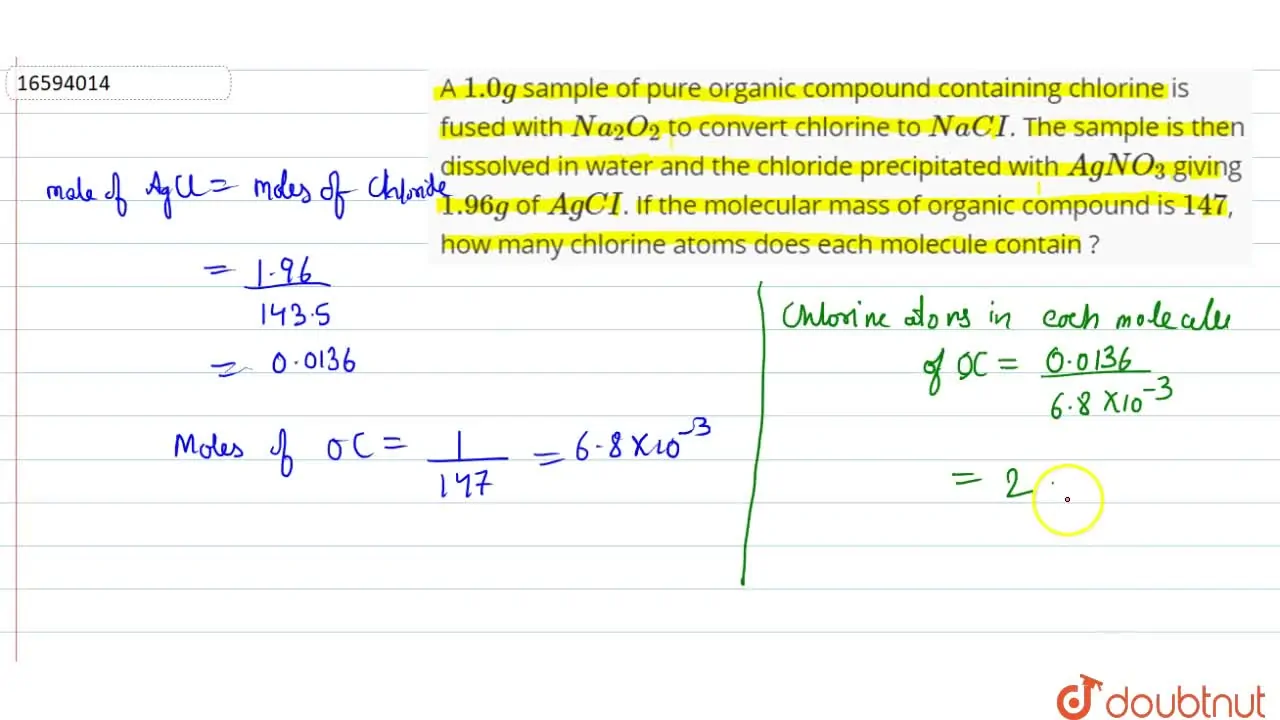 16594014
A 1.0g sample of pure organic compound containing chlorine is
fused with Na₂O₂ to convert chlorine to NaCI. The sample is then
dissolved in water and the chloride precipitated with AgNO₃ giving
1.96g of AgCI. If the molecular mass of organic compound is 147,
how many chlorine atoms does each molecule contain ?
mole of AgCl = moles of Chloride
= 1.96
143.5
= 0.0136
Moles of OC = 1/147 = 6.8 X10⁻³
Chlorine atoms in each molecule
of OC = 0.0136
6.8 X10⁻³
= 2
doubtnut